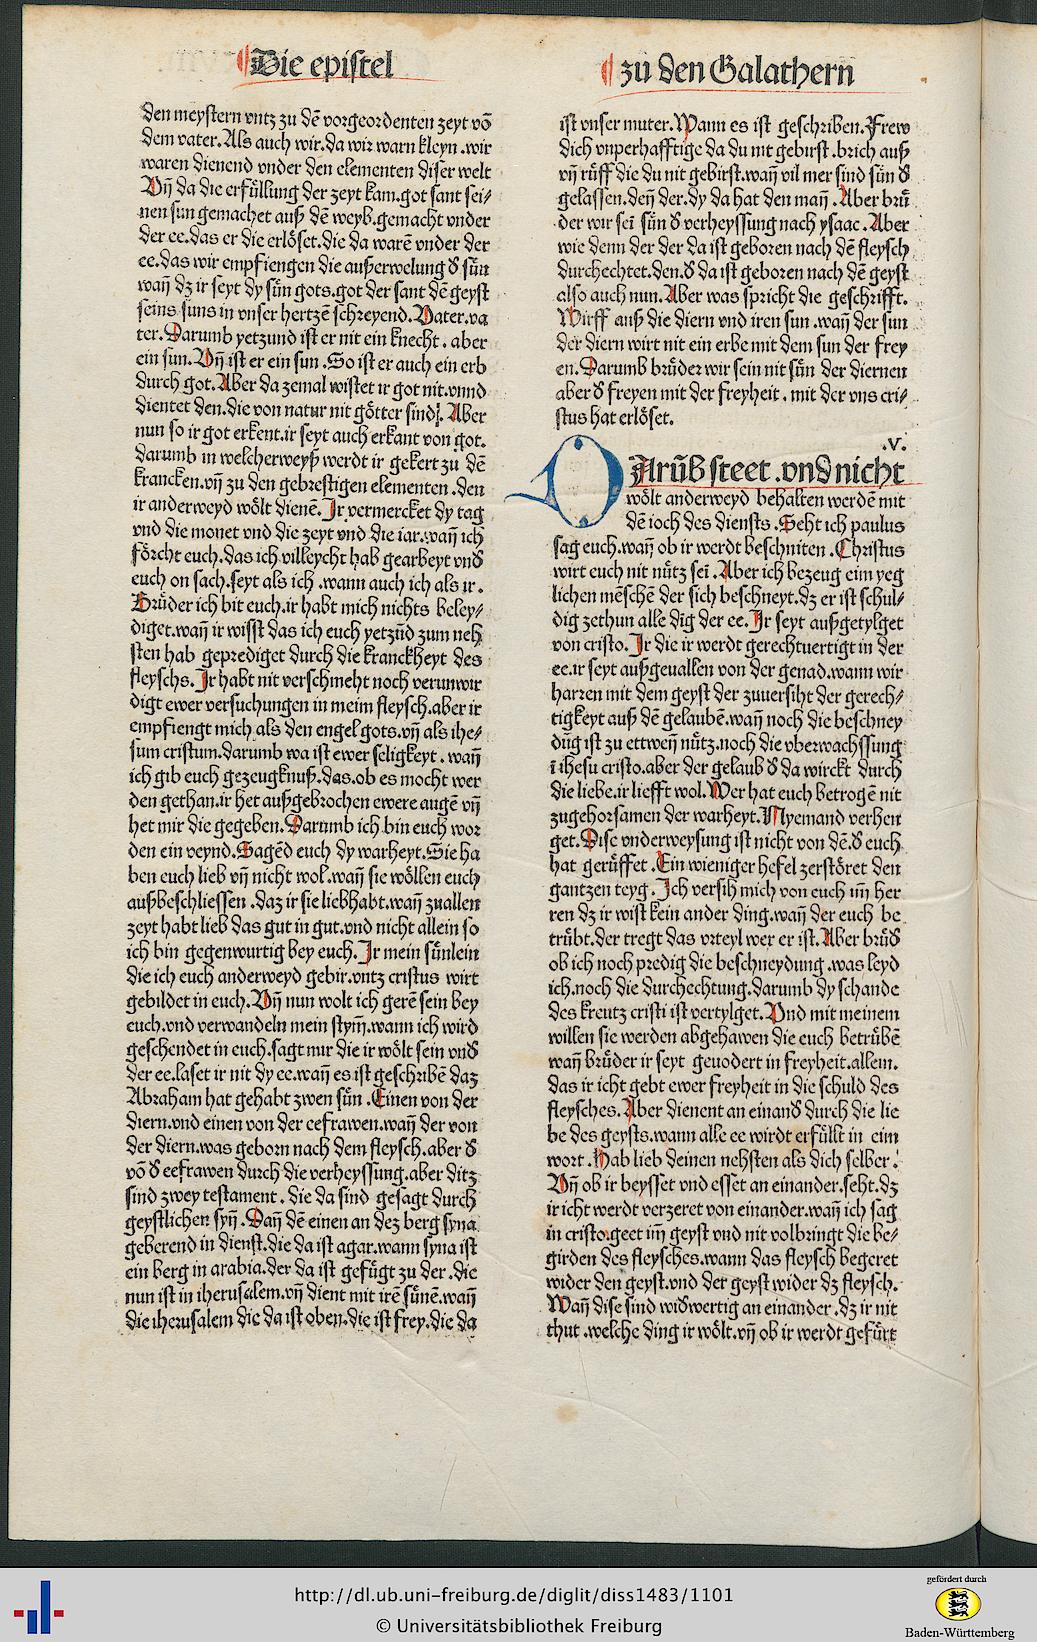 Die epistel
zů den Galathern
den meystern vntz zu dē vorgeordenten zeyt vō
dem vater. Als auch wir. da wir warn kleyn. wir
waren dienend vnder den elementen diser welt
Vn̄ da die erfüllung der zeyt kam. got sant sei⸗
nen sun gemachet auß dē weyb. gemacht vnder
der ee. das er die erlöset. die da warē vnder der
ee. das wir empfiengen die außerwelung d sün
wan̄ dz ir seyt dy sün gots. got der sant dē geyst
seins suns in vnser hertzē schreyend. Vater. va
ter. Darumb yetzund ist er nit ein knecht. aber
ein sun. Vn̄ ist er ein sun. So ist er auch ein erb
durch got. Aber da zemal wistet ir got nit. vnnd
dientet den. die von natur nit götter sind. Aber
nun so ir got erkent. ir seyt auch erkant von got.
darumb in welcherweyß werdt ir gekert zu dē
krancken. vn̄ zu den gebrestigen elementen. den
ir anderweyd wölt dienē. Ir vermercket dy tag
vnd die monet vnd die zeyt vnd die iar. wan̄ ich
förcht euch. das ich villeycht hab gearbeyt vnd
euch on sach. seyt als ich. wann auch ich als ir.
Brüder ich bit euch. ir habt mich nichts beley⸗
diget. wan̄ ir wisst das ich euch yetzūd zum neh
sten hab geprediget durch die kranckheyt des
fleyschs. Ir habt nit verschmeht noch verunwir
digt ewer versuchungen in meim fleysch. aber ir
empfiengt mich als den engel gots. vn̄ als ihe⸗
sum cristum. darumb wa ist ewer seligkeyt. wan̄
ich gib euch gezeugknuß. das. ob es mocht wer
den gethan. ir het außgebrochen ewere augē vn̄
het mir die gegeben. Darumb ich bin euch wor
den ein veynd. Sagēd euch dy warheyt. Sie ha
ben euch lieb vn̄ nicht wol. wan̄ sie wöllen euch
außbeschliessen. daz ir sie liebhabt. wan̄ zuallen
zeyt habt lieb das gut in gut. vnd nicht allein so
ich bin gegenwurtig bey euch. Ir mein sünlein
die ich euch anderweyd gebir. vntz cristus wirt
gebildet in euch. Vn̄ nun wolt ich gerē sein bey
euch. vnd verwandeln mein stym̄. wann ich wird
geschendet in euch. sagt mir die ir wölt sein vnd
der ee. laset ir nit dy ee. wan̄ es ist geschribē daz
Abraham hat gehabt zwen sün. Einen von der
diern. vnd einen von der eefrawen. wan̄ der von
der diern. was geborn nach dem fleysch. aber d
vō d eefrawen durch die verheyssung. aber ditz
sind zwey testament. die da sind gesagt durch
geystlichen syn̄. Dan̄ dē einen an dez berg syna
geberend in dienst. die da ist agar. wann syna ist
ein berg in arabia. der da ist gefügt zu der. die
nun ist in iherusalem. vn̄ dient mit irē sünē. wan̄
die iherusalem die da ist oben. die ist frey. die da
ist vnser muter. Wann es ist geschriben. Frew
dich vnperhafftige da du nit gebirst. brich auß
vn̄ rüff die du nit gebirst. wan̄ vil mer sind sün d
gelassen. den̄ der. dy da hat den man̄. Aber brü
der wir sei sün d verheyssung nach ysaac. Aber
wie denn der der da ist geboren nach dē fleysch
durchechtet. den. d da ist geboren nach dē geyst
also auch nun. Aber was spricht die geschrifft.
Wirff auß die diern vnd iren sun. wan̄ der sun
der diern wirt nit ein erbe mit dem sun der frey
en. Darumb brüder wir sein nit sün der diernen
aber d freyen mit der freyheit. mit der vns cri⸗
stus hat erlöset.
.V.
DArūb steet. vnd nicht
wölt anderweyd behalten werdē mit
dē ioch des diensts. Seht ich paulus
sag euch. wan̄ ob ir werdt beschniten. Christus
wirt euch nit nütz sei. Aber ich bezeug eim yeg
lichen mēschē der sich beschneyt. dz er ist schul⸗
dig zethun alle dīg der ee. Ir seyt außgetylget
von cristo. Ir die ir werdt gerechtuertigt in der
ee. ir seyt außgeuallen von der genad. wann wir
harren mit dem geyst der zuuersiht der gerech⸗
tigkeyt auß dē gelaubē. wan̄ noch die beschney
dūg ist zu ettwen̄ nütz. noch die vberwachssung
ī ihesu cristo. aber der gelaub d da wirckt durch
die liebe. ir liefft wol. Wer hat euch betrogē nit
zugehorsamen der warheyt. Nyemand verhen
get. Dise vnderweysung ist nicht von dē. d euch
hat gerüffet. Ein wieniger hefel zerstöret den
gantzen teyg. Ich versih mich von euch im̄ her
ren dz ir wist kein ander ding. wan̄ der euch be
trübt. der tregt das vrteyl wer er ist. Aber brüd
ob ich noch predig die beschneydung. was leyd
ich. noch die durchechtung. darumb dy schande
des kreutz cristi ist vertylget. Vnd mit meinem
willen sie werden abgehawen die euch betrübē
wan̄ brüder ir seyt geuodert in freyheit. allein.
das ir icht gebt ewer freyheit in die schuld des
fleysches. Aber dienent an einand durch die lie
be des geysts. wann alle ee wirdt erfüllt in eim
wort. Hab lieb deinen nehsten als dich selber.
Vn̄ ob ir beysset vnd esset an einander. seht. dz
ir icht werdt verzeret von einander. wan̄ ich sag
in cristo. geet im̄ geyst vnd nit volbringt die be⸗
girden des fleysches. wann das fleysch begeret
wider den geyst. vnd der geyst wider dz fleysch.
Wan̄ dise sind widwertig an einander. dz ir nit
thut. welche ding ir wölt. vn̄ ob ir werdt gefürt
http://dl.ub.uni-freiburg.de/diglit/diss1483/1101
© Universitätsbibliothek Freiburg
gefördert durch
Baden-Württemberg